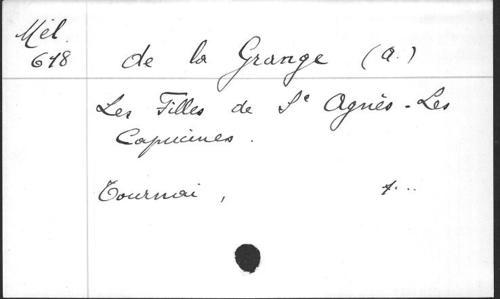 Mél.
648
de la Grange (A.)
Les Filles de Ste Agnès - Les
Capucines.
Tournai,